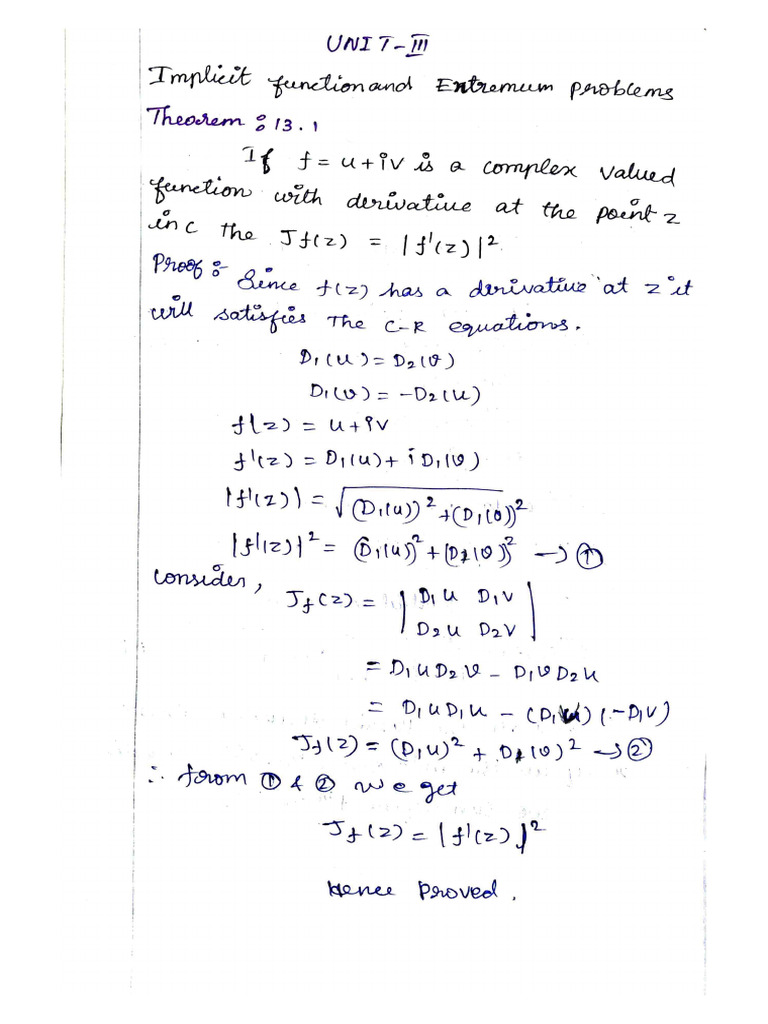 UNIT-III
Implicit function and Extremum problems
Theorem : 13.1
If f = u + iv is a complex valued
function with derivative at the point z
in c the Jf(z) = |f'(z)|²
Proof :- Since f(z) has a derivative at z it
will satisfies the C-R equations.
D₁(u) = D₂(v)
D₁(v) = -D₂(u)
f(z) = u + iv
f'(z) = D₁(u) + i D₁(v)
|f'(z)| = √(D₁(u))² + (D₁(v))²
|f'(z)|² = (D₁(u))² + (D₁(v))² → ①
consider,
Jf(z) = | D₁u D₁v |
| D₂u D₂v |
= D₁u D₂v - D₁v D₂u
= D₁u D₁u - (D₁v) (-D₁v)
Jf(z) = (D₁u)² + D₁(v)² → ②
∴ from ① & ② we get
Jf(z) = |f'(z)|²
Hence proved.